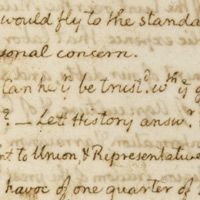 would fly to the standa
sonal concern.
can he yn be trustd. wth ye g
? — Let History answr
nt to Union, & Representative
havoc of one quarter of